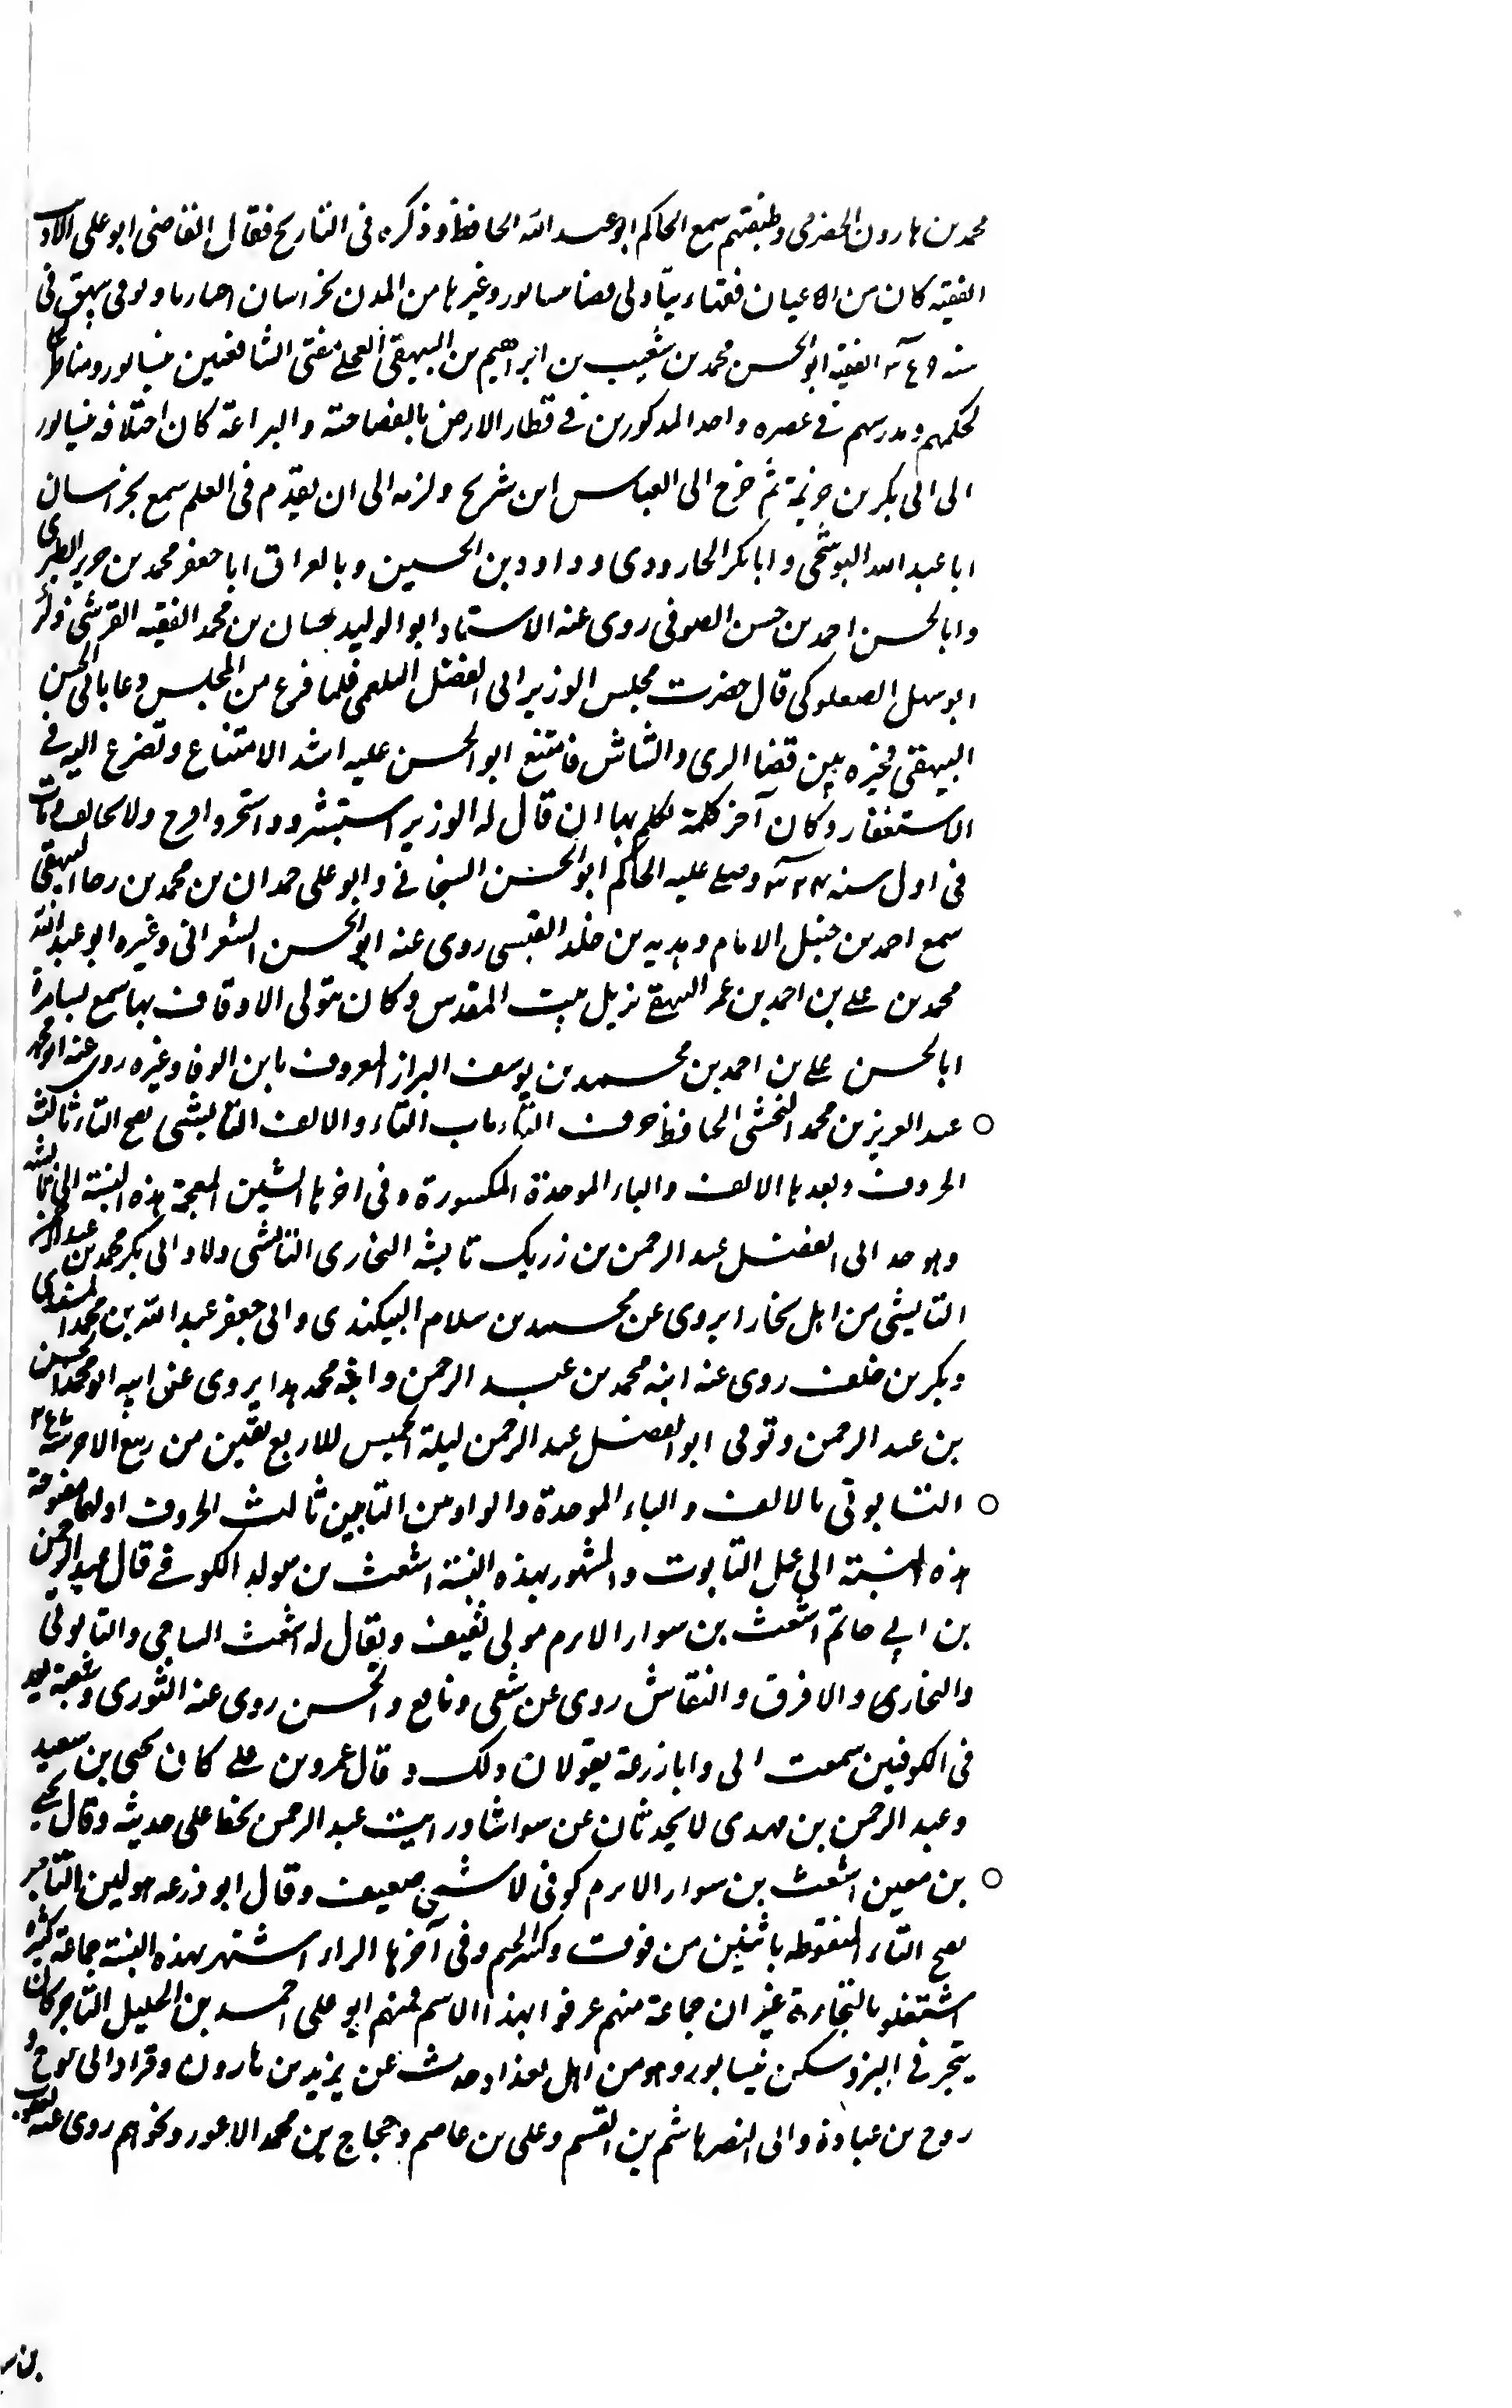 محمد بن هارون الحضرمى وطبقتهم سمع الحاكم ابو عبد الله الحافظ وذكره فى التاريخ فقال القاضى ابو على
الفقيه كان من الاعيان فقهاء ولى قضا نيسابور وغيرها من المدن بخراسان وتوفى ببيهق فى
سنه الفقيه ابو الحسن محمد بن شعيب بن ابراهيم بن البيهقى العجلى مفتى الشافعيين بنيسابور ومناظر
لحكمهم ومدرسهم فى عصره واحد المذكورين فى قطار الارض بالفصاحته والبراعة كان اختلافه بنيسابور
الى ابى بكر بن خزيمة ثم خرج الى العباس ابن شريح ولزمه الى ان تقدم فى العلم سمع بخراسان
ابا عبد الله البوشنجى وابا بكر الجارودى وداود بن الحسين وبالعراق ابا جعفر محمد بن جرير الطبرى
وابا الحسن احمد بن حسن الصوفى روى عنه الاستاد ابو الوليد حسان بن محمد الفقيه القرشى وذكر
ابو سهل الصعلوكى قال حضرت مجلس الوزير ابى الفضل البلعمى فلما فرغ من المجلس دعا بابى الحسن
البيهقى فخيره بين قضا الرى والشاش فامتنع ابو الحسن عليه اشد الامتناع وتضرع اليه فى
الاستعفار وكان آخر كلمة تكلم بها ان قال له الوزير استبشر واستخر وافرح ولا تخالف ومات
فى اول سنه ٣٢٤ وصلى عليه الحاكم ابو الحسن وابو على حمدان بن محمد بن رجا البيهقى
سمع احمد بن حنبل الامام وهدبه بن خلد القيسى روى عنه ابو الحسن الشعرانى وغيره ابو عبد الله
محمد بن على بن احمد بن عمر البيهقى نزيل بيت المقدس وكان متولى الاوقاف بها سمع
ابا الحسن على بن احمد بن محمد بن يوسف البزاز المعروف بابن الوفا وغيره روى عنه ابو محمد
عبد العزيز بن محمد النخشى الحافظ حرف التاء باب التاء والالف التابشى بفتح التاء ثالث
الحروف وبعدها الالف والباء الموحدة المكسورة وفى اخرها الشين المعجمة هذه النسبة الى تابشه
وهو جد ابى الفضل عبد الرحمن بن زريك تابشه البخارى التابشى ولاد ابى بكر محمد بن
التابشى من اهل بخارا يروى عن محمد بن سلام البيكندى وابى جعفر عبد الله بن محمد المسندى
وبكر بن خلف روى عنه ابنه محمد بن عبد الرحمن وابنه محمد هذا يروى عن ابيه ابو محمد الحسن
بن عبد الرحمن وتوفى ابو الفضل عبد الرحمن ليلة الخميس للاربع بقين من ربيع الاخر
التابوتى بالالف والباء الموحدة والواو بين التابين ثالث الحروف اولهما مفتوحة
هذه النسبة الى عمل التابوت والمشهور بهذه النسبة اشعث بن سوار الكوفى قال عبد الرحمن
بن ابى حاتم اشعث بن سوار الابرم مولى ثقيف ويقال له اشعث الساجى والتابوتى
والنجارى والافرق والنقاش روى عن شعبى ونافع والحسن روى عنه الثورى وشعبة يعد
فى الكوفيين سمعت ابى وابا زرعة يقولان ذلك وقال عمرو بن على كان يحيى بن سعيد
وعبد الرحمن بن مهدى لا يحدثان عن ورايت عبد الرحمن يخط على حديثه وقال يحيى
بن معين اشعث بن سوار الابرم كوفى لا شى ضعيف وقال ابو ذرعه هو لين التاجر
بفتح التاء المنقوطه باثنتين من فوق وكسر الجيم وفى آخرها الراء اشتهر بهذه النسبة جماعة كثيرة
اشتغلو بالتجارة غير ان جماعة منهم عرفوا بهذا الاسم فمنهم ابو على احمد بن الخليل التاجر كان
يتجر فى البز وسكن نيسابور وهو من اهل بغداد حدث عن يزيد بن هارون وقراد ابى نوح و
روح بن عبادة وابى النصر هاشم بن القسم وعلى بن عاصم وحجاج بن محمد الاعور ونحوهم روى عنه